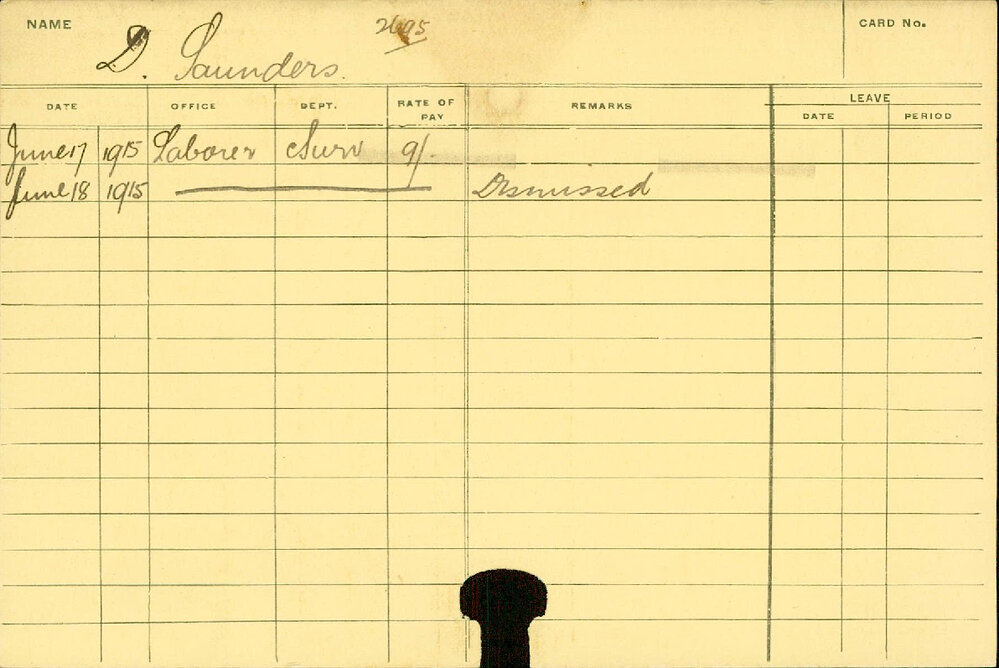 NAME D. Saunders. 2695 CARD No.
DATE OFFICE DEPT. RATE OF PAY REMARKS LEAVE
DATE PERIOD
June 17 1915 Laborer Surv 9/-
June 18 1915 Dismissed